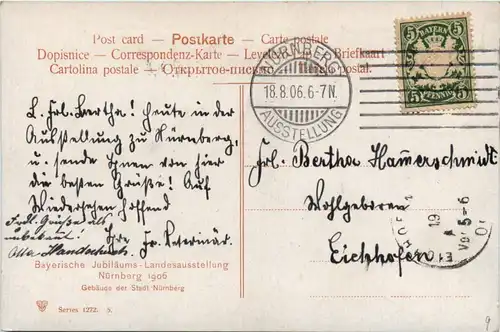 Post card — Postkarte — Carte postale
Dopisnice — Correspondenz-Karte — Levelező Briefkaart
Cartolina postale — Открытое письмо postal.
NÜRNBERG
18.8.06.6-7N.
AUSSTELLUNG
BAYERN
5 5
5 PFENNIG 5
L. Frl. Bertha! Heute in der
Ausstellung zu Nürnberg,
u. sende Ihnen von hier
die besten Grüße! Auf
Wiedersehen hoffend
Ihre Fr. Veterinär.
Frdl. Grüße als
unbekannt!
Frl. Bertha Hamerschmidt
Wohlgeboren
Eichhofen
19
Vor 5-6
Bayerische Jubiläums-Landesausstellung
Nürnberg 1906
Gebäude der Stadt Nürnberg
Series 1272.